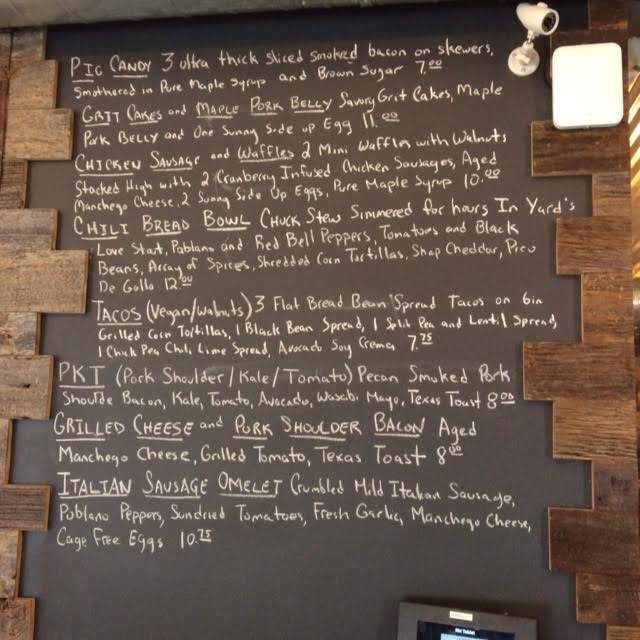 PIG CANDY 3 ultra thick sliced smoked bacon on skewers,
Smothered in Pure Maple Syrup and Brown Sugar 7.00
GRIT CAKES and MAPLE PORK BELLY Savory Grit Cakes, Maple
Pork Belly and One Sunny Side up Egg 11.00
CHICKEN SAUSAGE and WAFFLES 2 Mini Waffles with Walnuts
Stacked High with 2 Cranberry Infused Chicken Sausages, Aged
Manchego Cheese, 2 Sunny Side Up Eggs, Pure Maple Syrup 10.00
CHILI BREAD BOWL Chuck Stew Simmered for hours In Yard's
Love Stout, Poblano and Red Bell Peppers, Tomatoes and Black
Beans, Array of Spices, Shredded Corn Tortillas, Sharp Cheddar, Pico
De Gallo 12.00
TACOS (Vegan/Walnuts) 3 Flat Bread Bean Spread Tacos on 6in
Grilled Corn Tortillas, 1 Black Bean Spread, 1 Split Pea and Lentil Spread,
1 Chick Pea Chili Lime Spread, Avocado Soy Crema 7.75
PKT (Pork Shoulder/Kale/Tomato) Pecan Smoked Pork
Shoulde Bacon, Kale, Tomato, Avocado, Wasabi Mayo, Texas Toast 8.00
GRILLED CHEESE and PORK SHOULDER BACON Aged
Manchego Cheese, Grilled Tomato, Texas Toast 8.00
ITALIAN SAUSAGE OMELET Crumbled Mild Italian Sausage,
Poblano Peppers, Sundried Tomatoes, Fresh Garlic, Manchego Cheese,
Cage Free Eggs 10.75